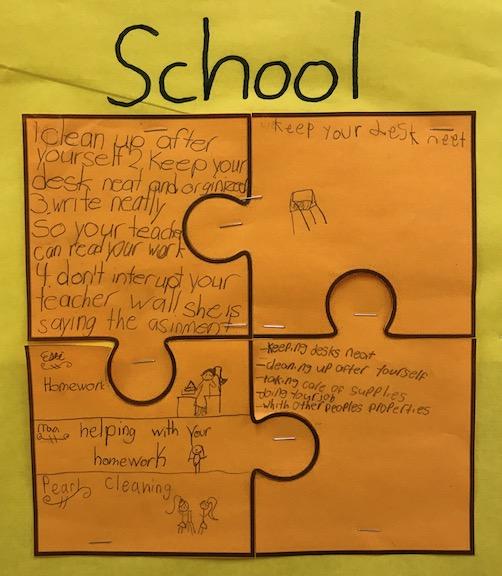 School
1. clean up after
yourself 2. Keep your
desk neat and orginized
3. write neatly
So your teacher
can read your work
4. don't interupt your
teacher wall she is
saying the asinment
Keep your desk neet
Homework
helping with your
homework
Pearl Cleaning
-keeping desks neat
-cleaning up after yourself
-taking care of supplies
doing your job
-whith other peoples properties